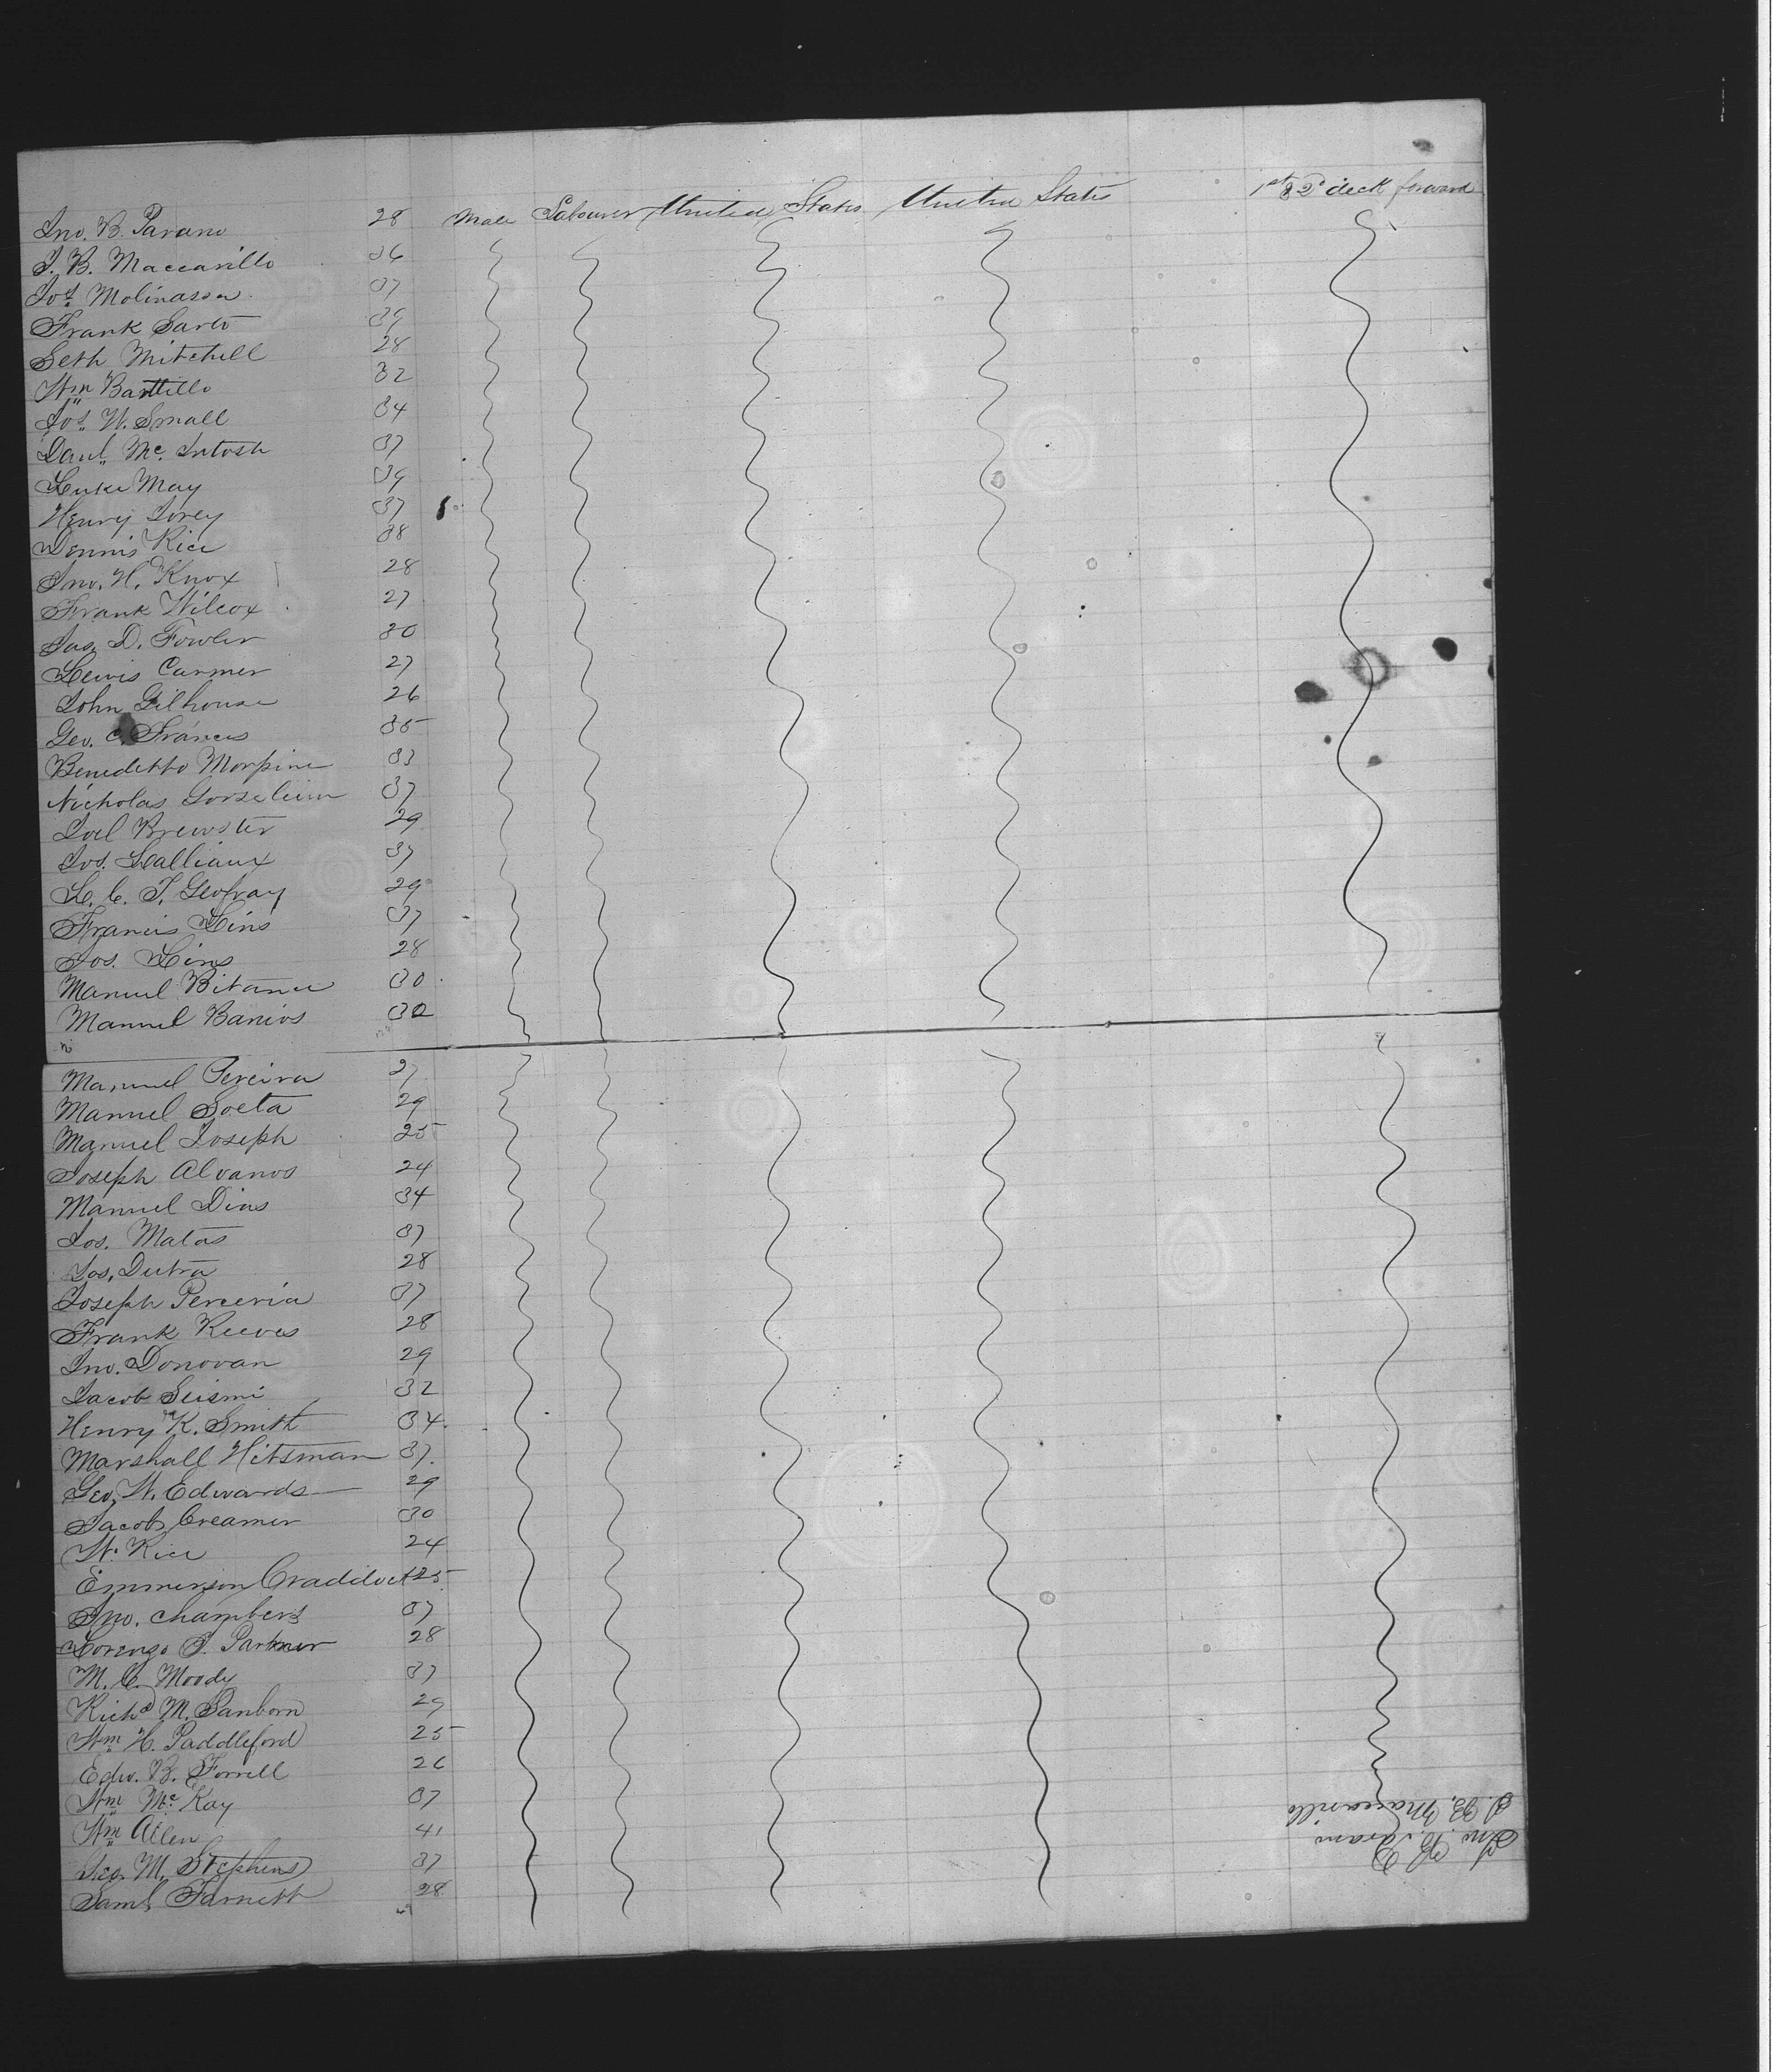 Jno. B. Parano 28 Male Labourer United States United States 1st & 2d deck forward
J. B. Maccarillo 36
Jos. Molinassa 37
Frank Sarto 39
Seth Mitchell 28
Wm Bartillo 32
Jos. W. Small 34
Danl. Mc. Intosh 37
Luke May 39
Henry Lorey 37
Dennis Rice 38
Jno. H. Knox 28
Frank Wilcox 27
Jas. D. Fowler 30
Lewis Carmer 27
John Gilhouse 26
Geo. C. Francis 35
Benedetto Morpine 33
Nicholas 37
Joel Brewster 29
Jos. Lalliaux 37
L. C. J. Geofray 29
Francis Lins 37
Jos. Lins 28
Manuel Bitance 30
Manuel Banios 32
Manuel Pereira 27
Manuel Soeta 29
Manuel Joseph 25
Joseph Alvanos 24
Manuel Dias 34
Jos. Matas 37
Jos. Dutra 28
Joseph Perceria 37
Frank Reeves 28
Jno. Donovan 29
Jacob Seismi 32
Henry K. Smith 34
Marshall Hitsman 37
Geo. W. Edwards 29
Jacob Creamer 30
W. Rice 24
Emmerson Craddock 25
Jno. Chambers 37
Lorenzo J. Parker 28
M. C. Moody 37
Richd M. Sanborn 29
Wm H. Paddleford 25
Edw. B. Forrell 26
Wm Mc Kay 37
Wm Allen 41
Geo. M. Stephens 37
Saml Farnett 28
J. B. Maccarillo
Jno. B. Parano